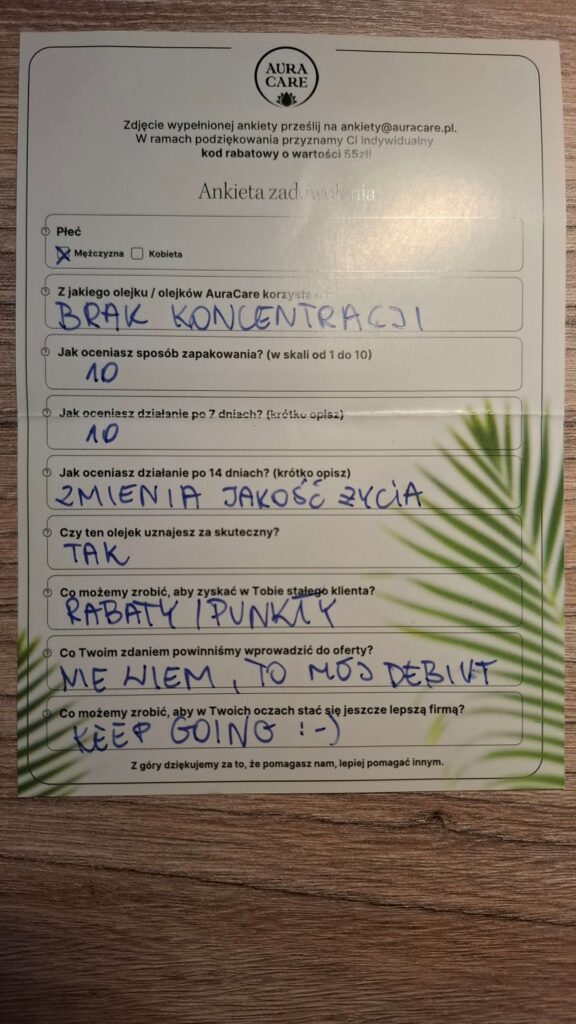 AURA
CARE
Zdjęcie wypełnionej ankiety prześlij na ankiety@auracare.pl.
W ramach podziękowania przyznamy Ci indywidualny
kod rabatowy o wartości 55zł!
Ankieta zadowolenia
Płeć
Mężczyzna Kobieta
Z jakiego olejku / olejków AuraCare
BRAK KONCENTRACJI
Jak oceniasz sposób zapakowania? (w skali od 1 do 10)
10
Jak oceniasz działanie po 7 dniach? (krótko opisz)
10
Jak oceniasz działanie po 14 dniach? (krótko opisz)
ZMIENIA JAKOŚĆ ŻYCIA
Czy ten olejek uznajesz za skuteczny?
TAK
Co możemy zrobić, aby zyskać w Tobie stałego klienta?
RABATY / PUNKTY
Co Twoim zdaniem powinniśmy wprowadzić do oferty?
NIE WIEM, TO MÓJ DEBIUT
Co możemy zrobić, aby w Twoich oczach stać się jeszcze lepszą firmą?
KEEP GOING :-)
Z góry dziękujemy za to, że pomagasz nam, lepiej pomagać innym.